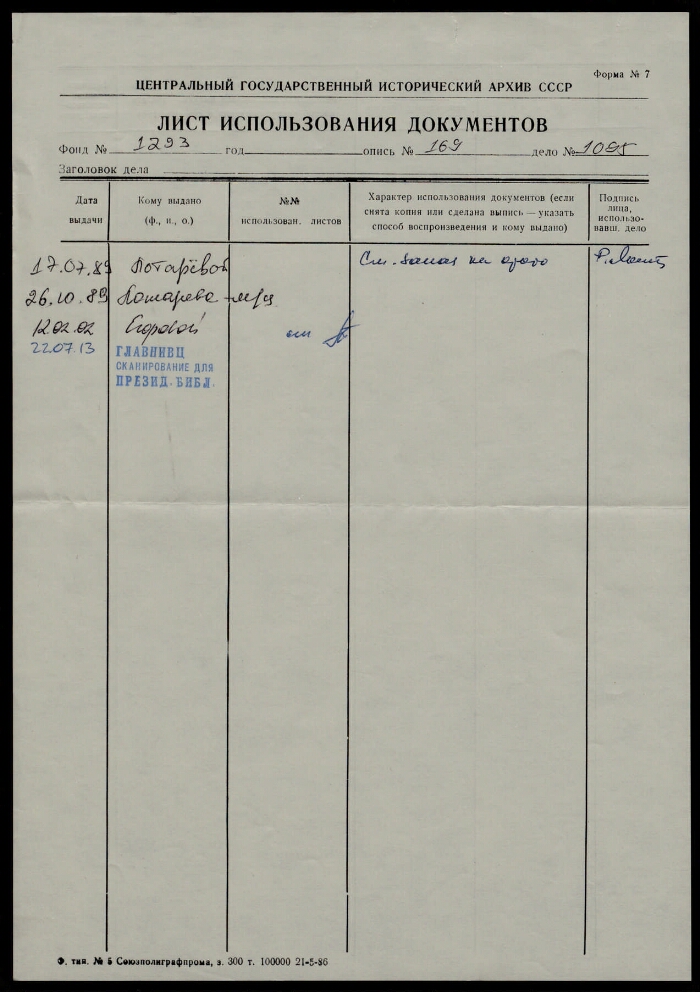 Форма № 7
ЦЕНТРАЛЬНЫЙ ГОСУДАРСТВЕННЫЙ ИСТОРИЧЕСКИЙ АРХИВ СССР
ЛИСТ ИСПОЛЬЗОВАНИЯ ДОКУМЕНТОВ
Фонд № 1293 год опись № 169 дело № 1095
Заголовок дела
Дата выдачи
Кому выдано (ф., и., о.)
№№ использован. листов
Характер использования документов (если снята копия или сделана выпись — указать способ воспроизведения и кому выдано)
Подпись лица, использо- вавш. дело
17.07.89 См.
26.10.89
12.02.02
22.07.13 ГЛАВНИВЦ
СКАНИРОВАНИЕ ДЛЯ
ПРЕЗИД. БИБЛ.
Ф. тип. № 5 Союзполиграфпрома, з. 300 т. 100000 21-5-86